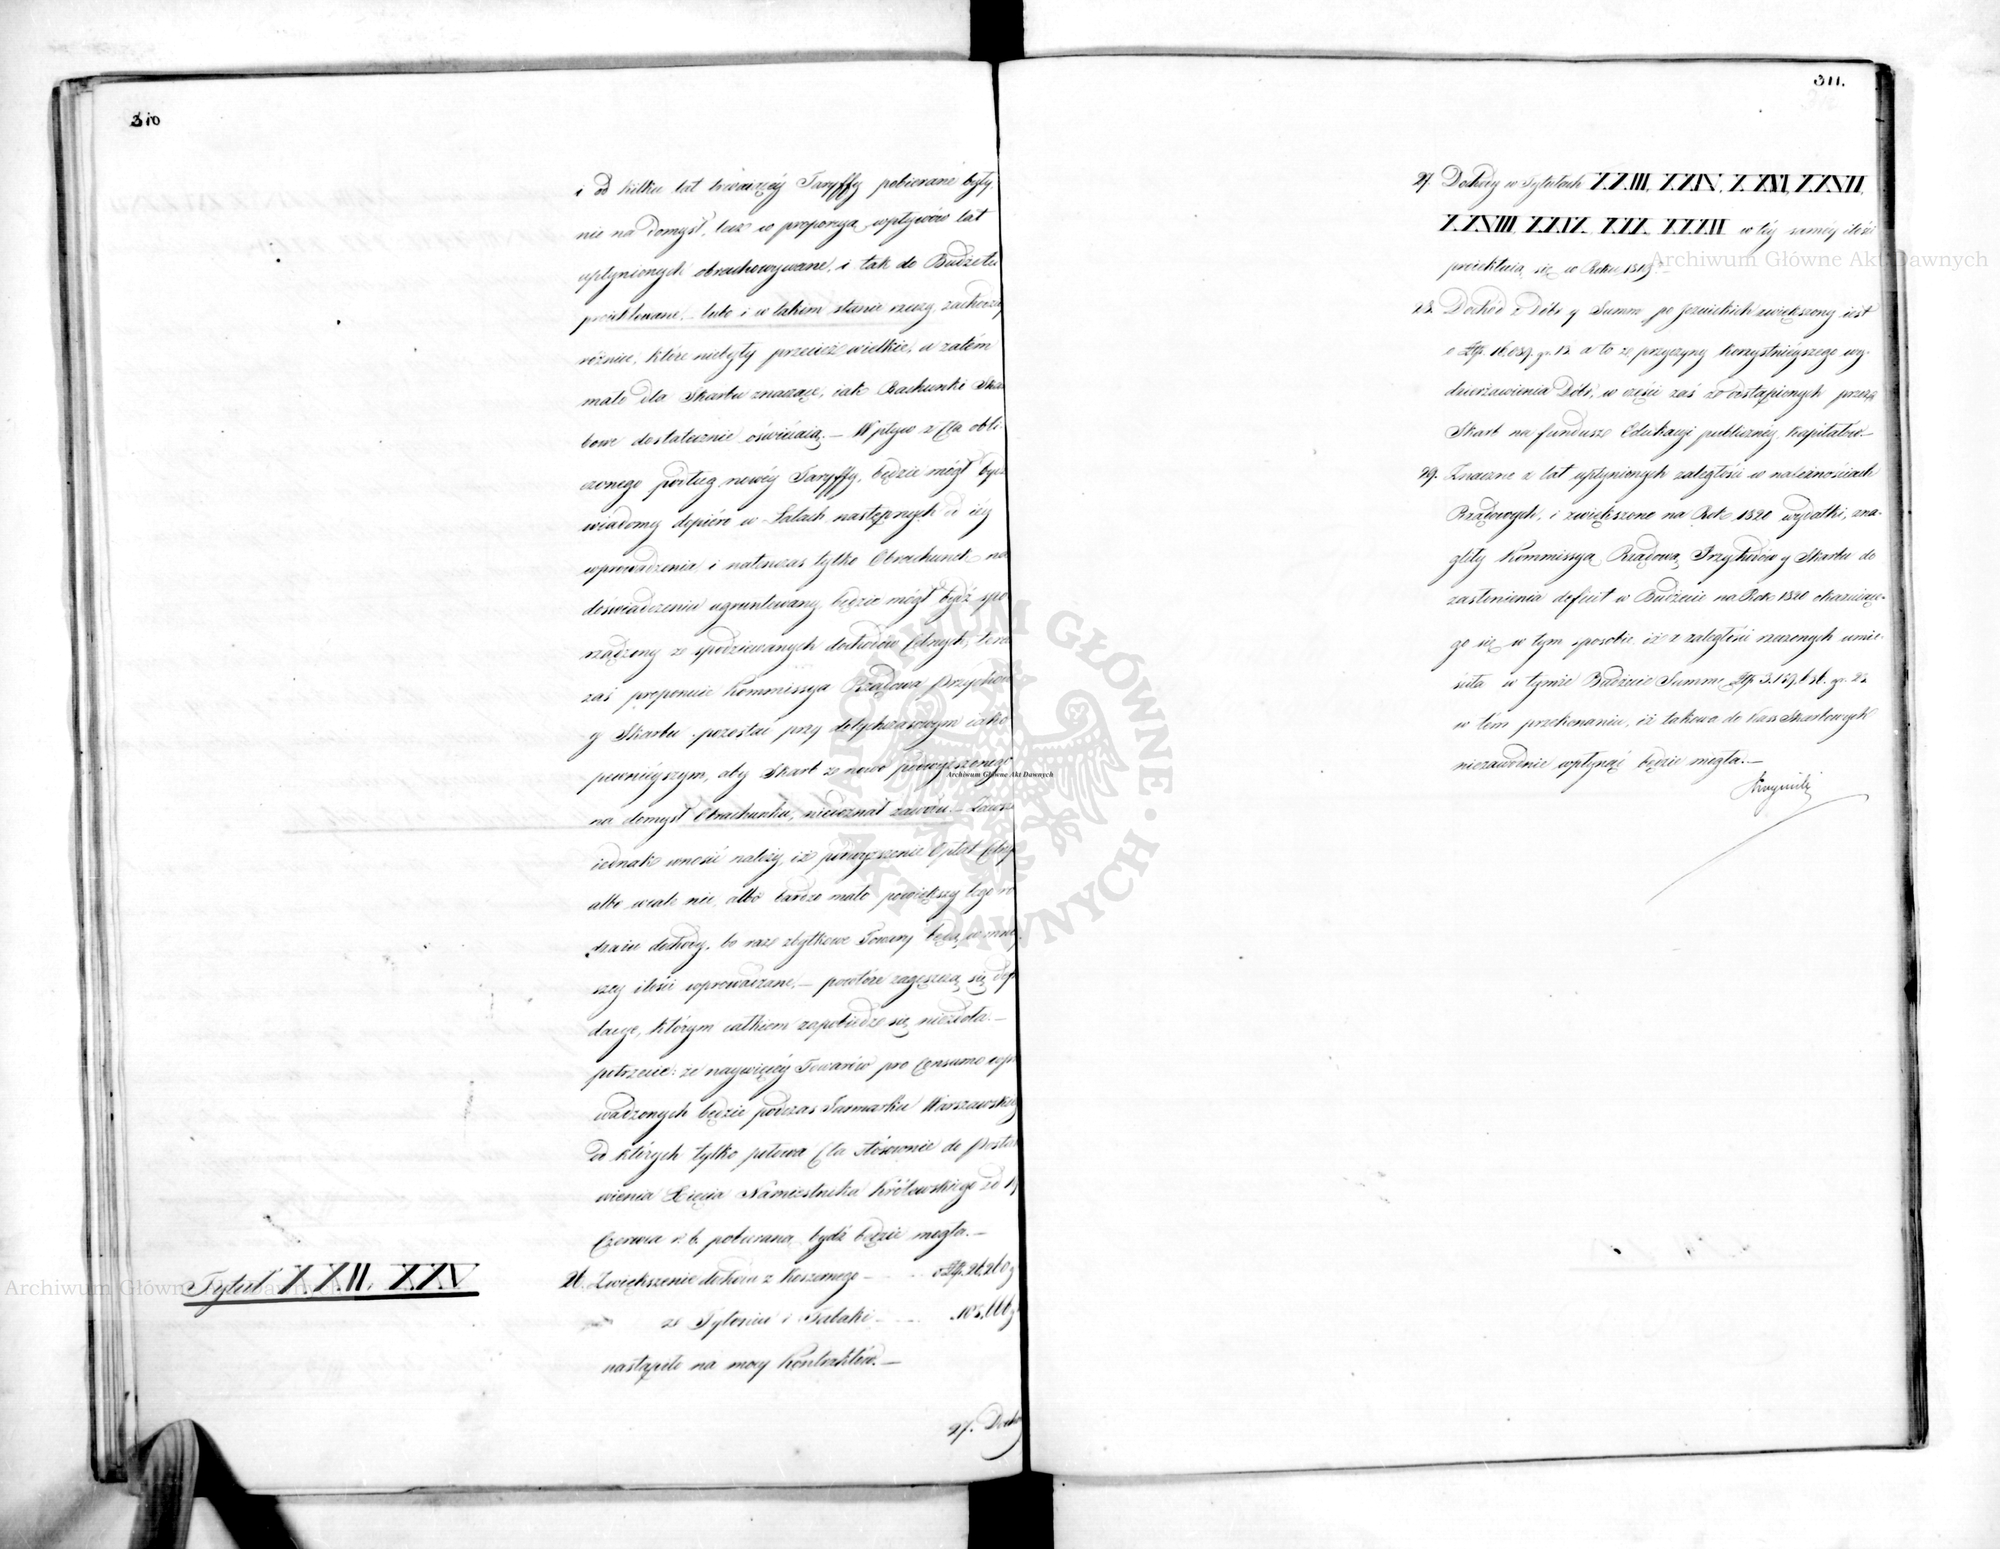 310
i od kilku lat trwaiącéy Taryffy pobierane były,
nie na domysł, lecz w proporcyą wpływów lat
upłynionych obrachowywane, i tak do Budżetu
proiektowane, lubo i w takem stanie rzeczy zachodzą
różnice, które niebyły przecież wielkie, a zatém
mało dla Skarbu znaczące, iak Rachunki Skar
bowe dostatecznie oświécaią. — Wpływ z Cła obli-
czonego podług nowéy Taryffy, będzie mógł bydź
wiadomy dopiéro w Latach następnych od iéy
wprowadzenia, i natenczas tylko Obrachunek na
doświadczeniu ugruntowany będzie mógł bydź spo
rządzony ze spodziewanych dochodów Celnych, teraz
zaś proponuie Kommissya Rządowa Przychodów
y Skarbu pozostać przy dotychczasowym iako
pewnieyszym, aby Skarb ze nowo podwyższonego
na domysł Obrachunku, niedoznał zawodu. — Zawsze
iednak wnosić należy, iż podwyższenie Opłat Celnych
albo wcale nie, albo bardzo mało powiększy tego ro
dzaiu dochody, bo raz zbytkowe Towary będą w mniey
szey ilości wprowadzane, — powtóre zagęszczą się defrau
dacye, którym całkiem zapobiedz się niezdoła. —
potrzecie: że naywięcéy Towarów pro Consumo wpro
wadzonych będzie podczas Jarmarku Warszawskiego
od których tylko połowa Cła stósownie do Postano
wienia Xięcia Namiestnika Królewskiego ze 19
Czerwca r. b. pobierana bydź będzie mogła. —
Tytuł XXII. XXV
26. Zwiększenie dochodu z Koszernego — o Złp. 26,260 g
ze Tytoniu i Tabaki — 105,666 g
nastąpiło na mocy Kontraktów. —
27. Docho
311.
27. Dochody w Tytułach XXIII, XXIV, XXVI, XXVII,
XXVIII, XXIX, XXX, XXXII w téy saméy ilości
proiektuią się w Roku 1819
28. Dochód z Dóbr y Summ po Jezuickich zwiększony iest
o Złp. 16,089 gr. 18. a to ze przyczyny korzystnieyszego wy-
dzierżawienia Dóbr, w części zaś ze odstąpionych przez
Skarb na fundusz Edukacyi publicznéy Kapitałów. —
29. Znaczne z lat upłynionych zaległości w należnościach
Rządowych, i zwiększone na Rok 1820 wydatki, zna-
gliły Kommissyą Rządową Przychodów y Skarbu do
zasłonienia deficit w Budżecie na Rok 1820 okazuiące-
go się w tym sposobie iż z zaległości rzeczonych umie-
ściła w tymże Budżecie Summę Złp. 3,159,636. gr. 23
w tém przekonaniu, iż takowa do Kass Skarbowych
niezawodnie wpłynąć będzie mogła. —
Archiwum Główne Akt Dawnych
Archiwum Główne Akt Dawnych
Archiwum Główne Akt Dawnych
ARCHIWUM GŁÓWNE AKT DAWNYCH